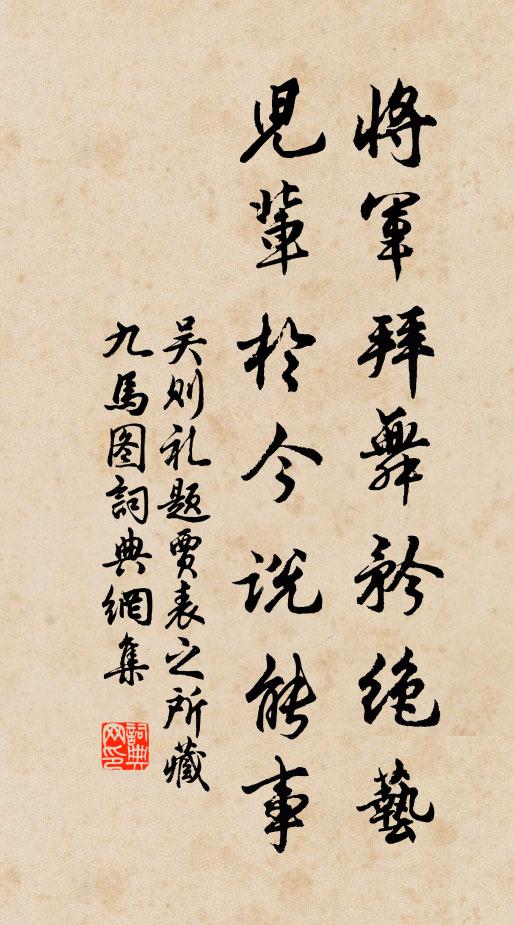 将軍拜舞矜绝藝
児輩於今説能事
吴则礼题贾表之所藏
九馬图詞典網集
詞典网印